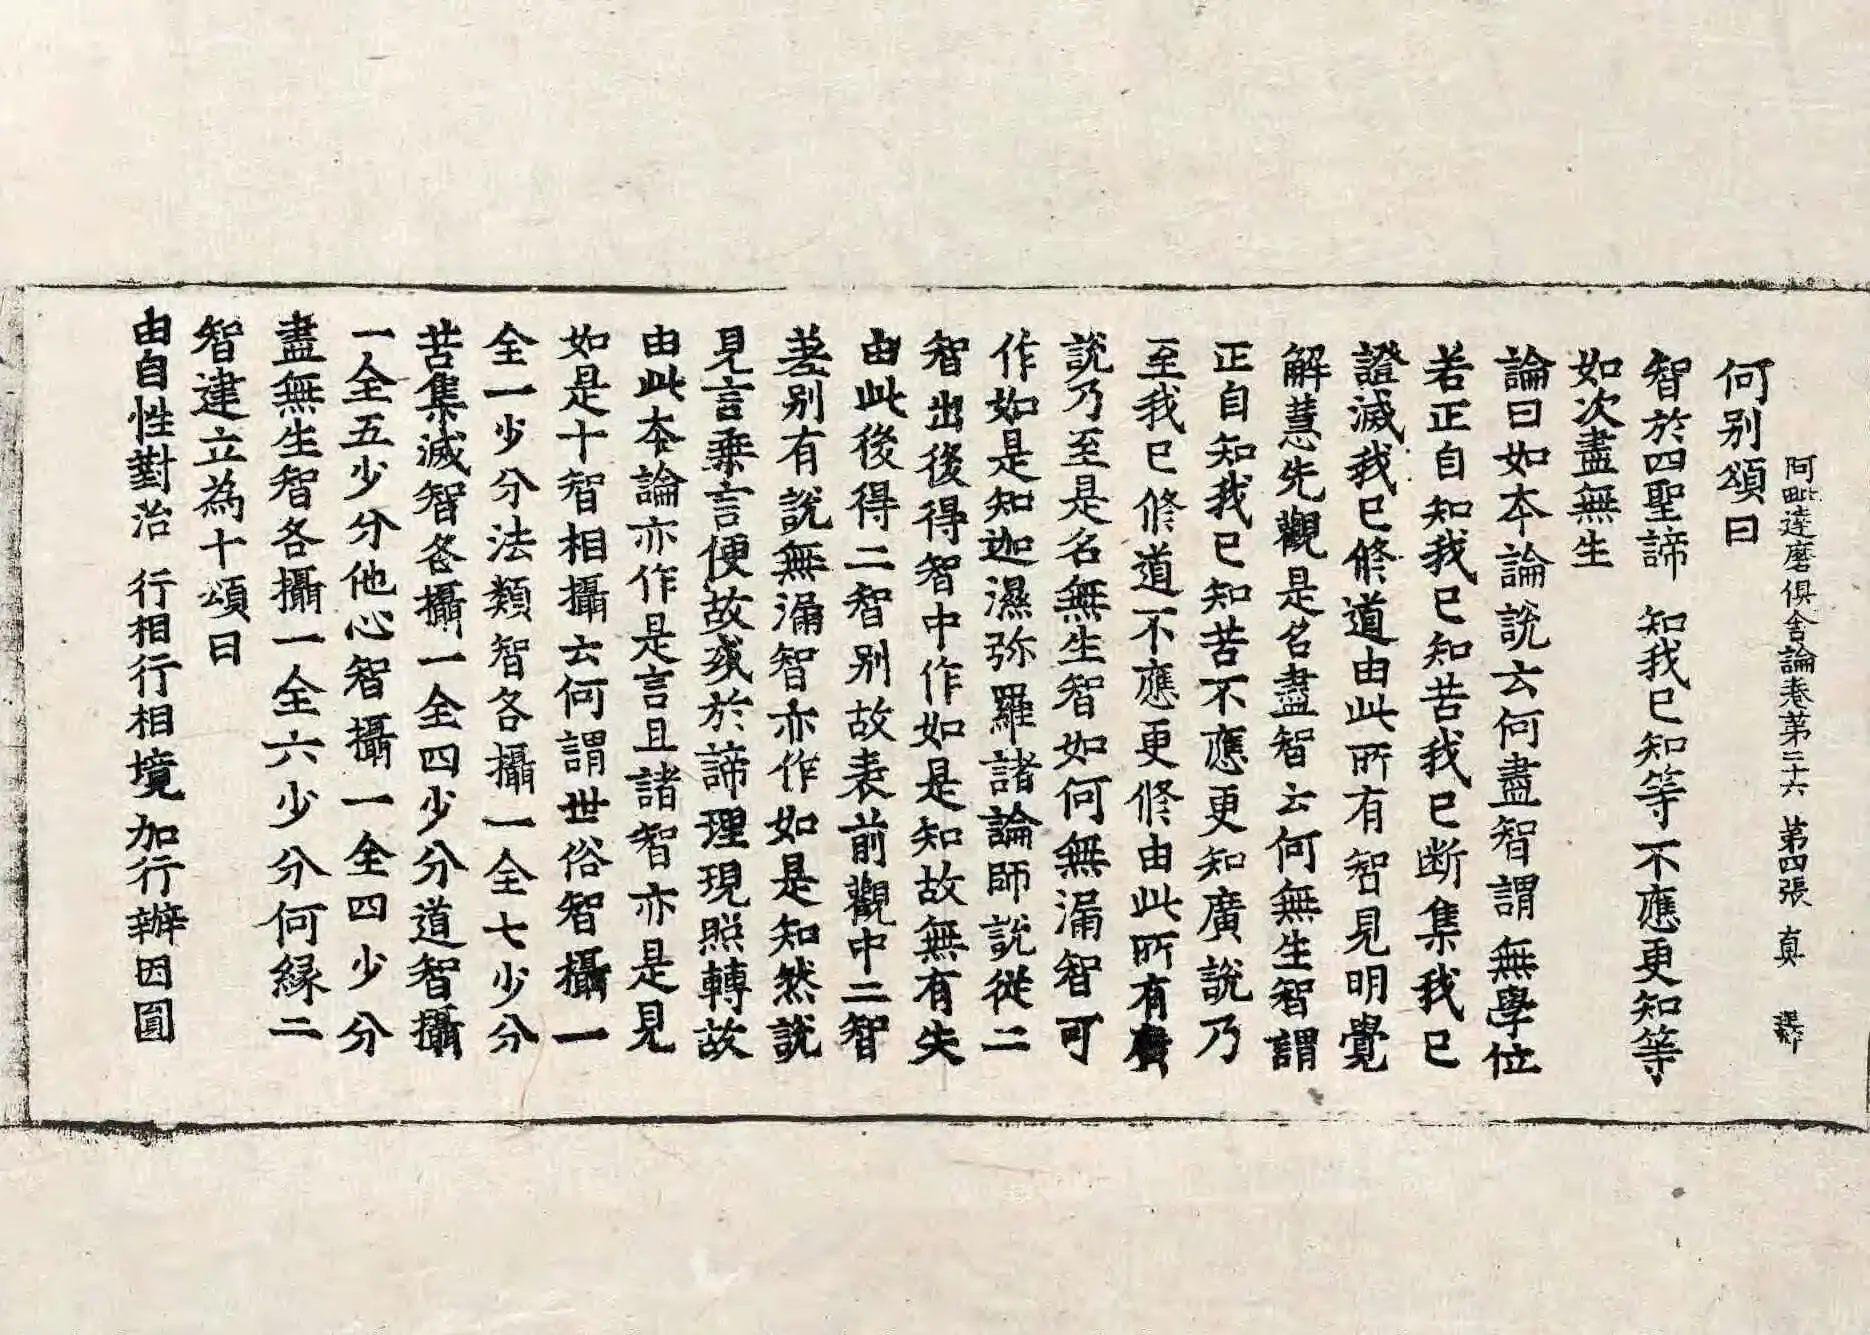 阿毗達磨俱舍論卷第二十六 第四張 真
何別頌曰
智於四聖諦 知我已知等 不應更知等
如次盡無生
論曰如本論說云何盡智謂無學位
若正自知我已知苦我已断集我已
證滅我已修道由此所有智見明覺
解慧光觀是名盡智云何無生智謂
正自知我已知苦不應更知廣說乃
至我已修道不應更修由此所有廣
說乃至是名無生智如何無漏智可
作如是知迦濕弥羅諸論師說從二
智出後得智中作如是知故無有失
由此後得二智別故表前觀中二智
差別有說無漏智亦作如是知然說
見言乘言便故或於諦理現照轉故
由此本論亦作是言且諸智亦是見
如是十智相攝云何謂世俗智攝一
全一少分法類智各攝一全七少分
苦集滅智各攝一全四少分道智攝
一全五少分他心智攝一全四少分
盡無生智各攝一全六少分何緣二
智建立為十頌曰
由自性對治 行相行相境 加行辦因圓